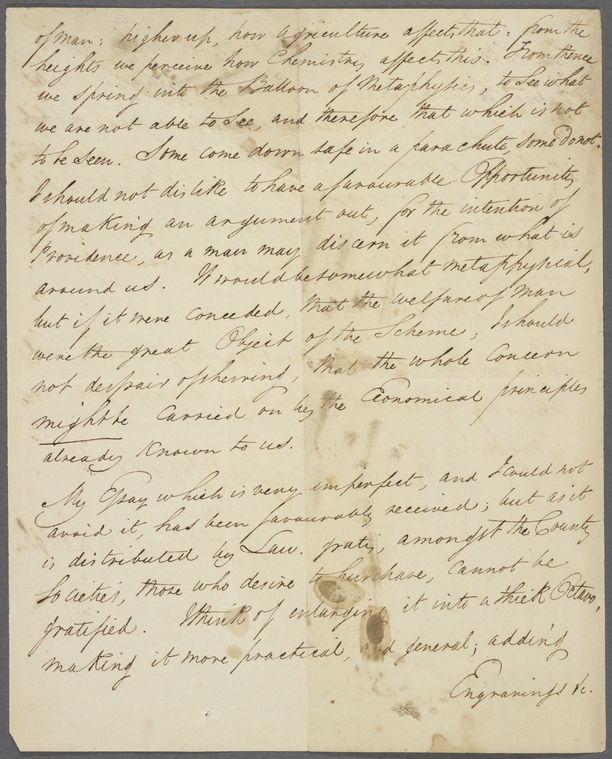 of man; higher up, how agriculture affects that: from the
heights we perceive how Chemistry affects this. From thence
we spring into the Balloon of Metaphysics, to see what
we are not able to see, and therefore that which is not
to be seen. Some come down safe in a parachute, some do not.
I should not dislike to have a favourable Opportunity
of making an argument out, for the intention of
Providence, as a man may discern it from what is
around us. It would be somewhat metaphysical,
but if it were conceded, that the welfare of Man
were the great Object of the Scheme, I should
not despair of shewing, that the whole Concern
might be carried on by the Economical principles
already known to us.
My Essay which is very imperfect, and I could not
avoid it, has been favourably received; but as it
is distributed by Law. gratis, amongst the County
Societies, those who desire to purchase, cannot be
gratified. I think of enlarging it into a thick Octavo,
making it more practical, and general; adding
Engravings &c.